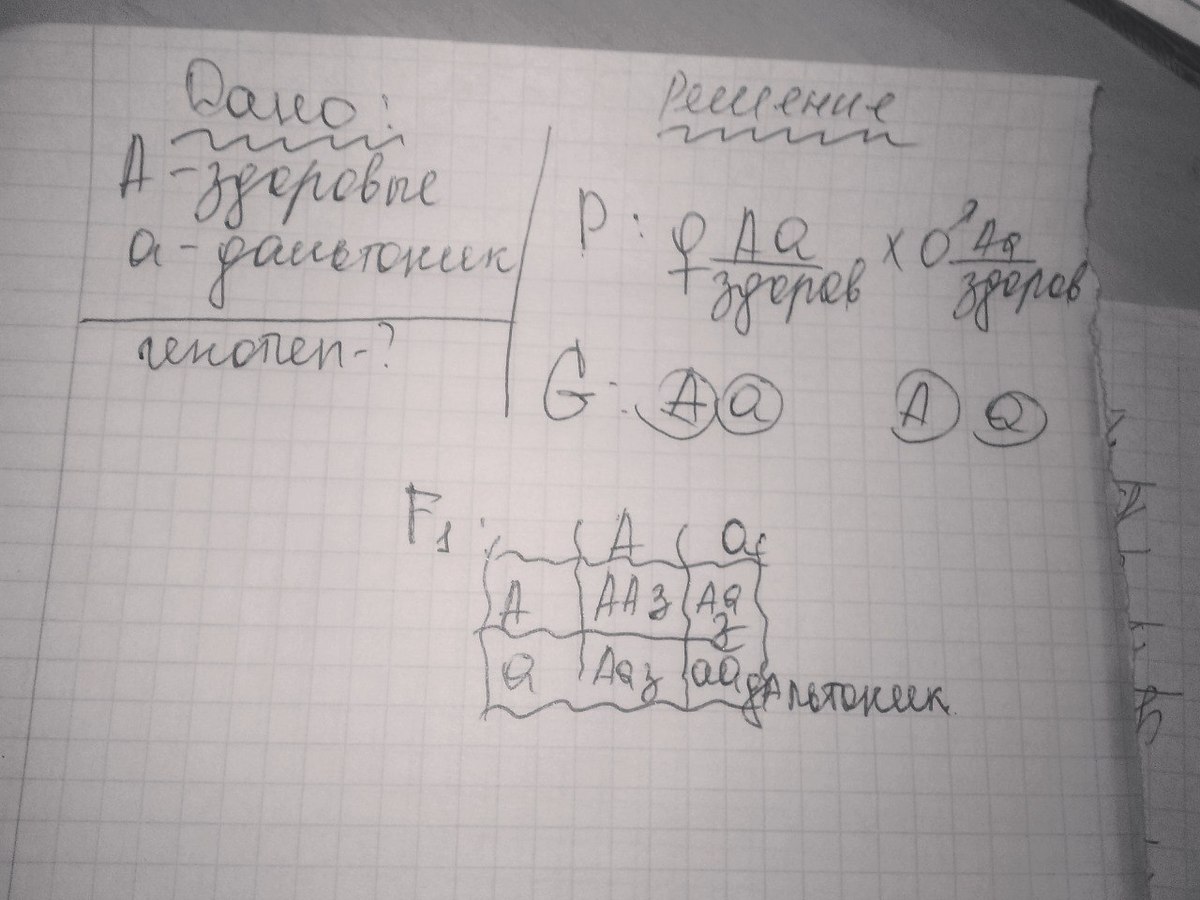 Дано:
А - здоровые
а - дальтоник
генотеп - ?
Решение
P: ♀ Aa × ♂ Aa
здоров здоров
G: A a A a
F1: A a
A AA з Aa з
a Aa з aa дальтоник